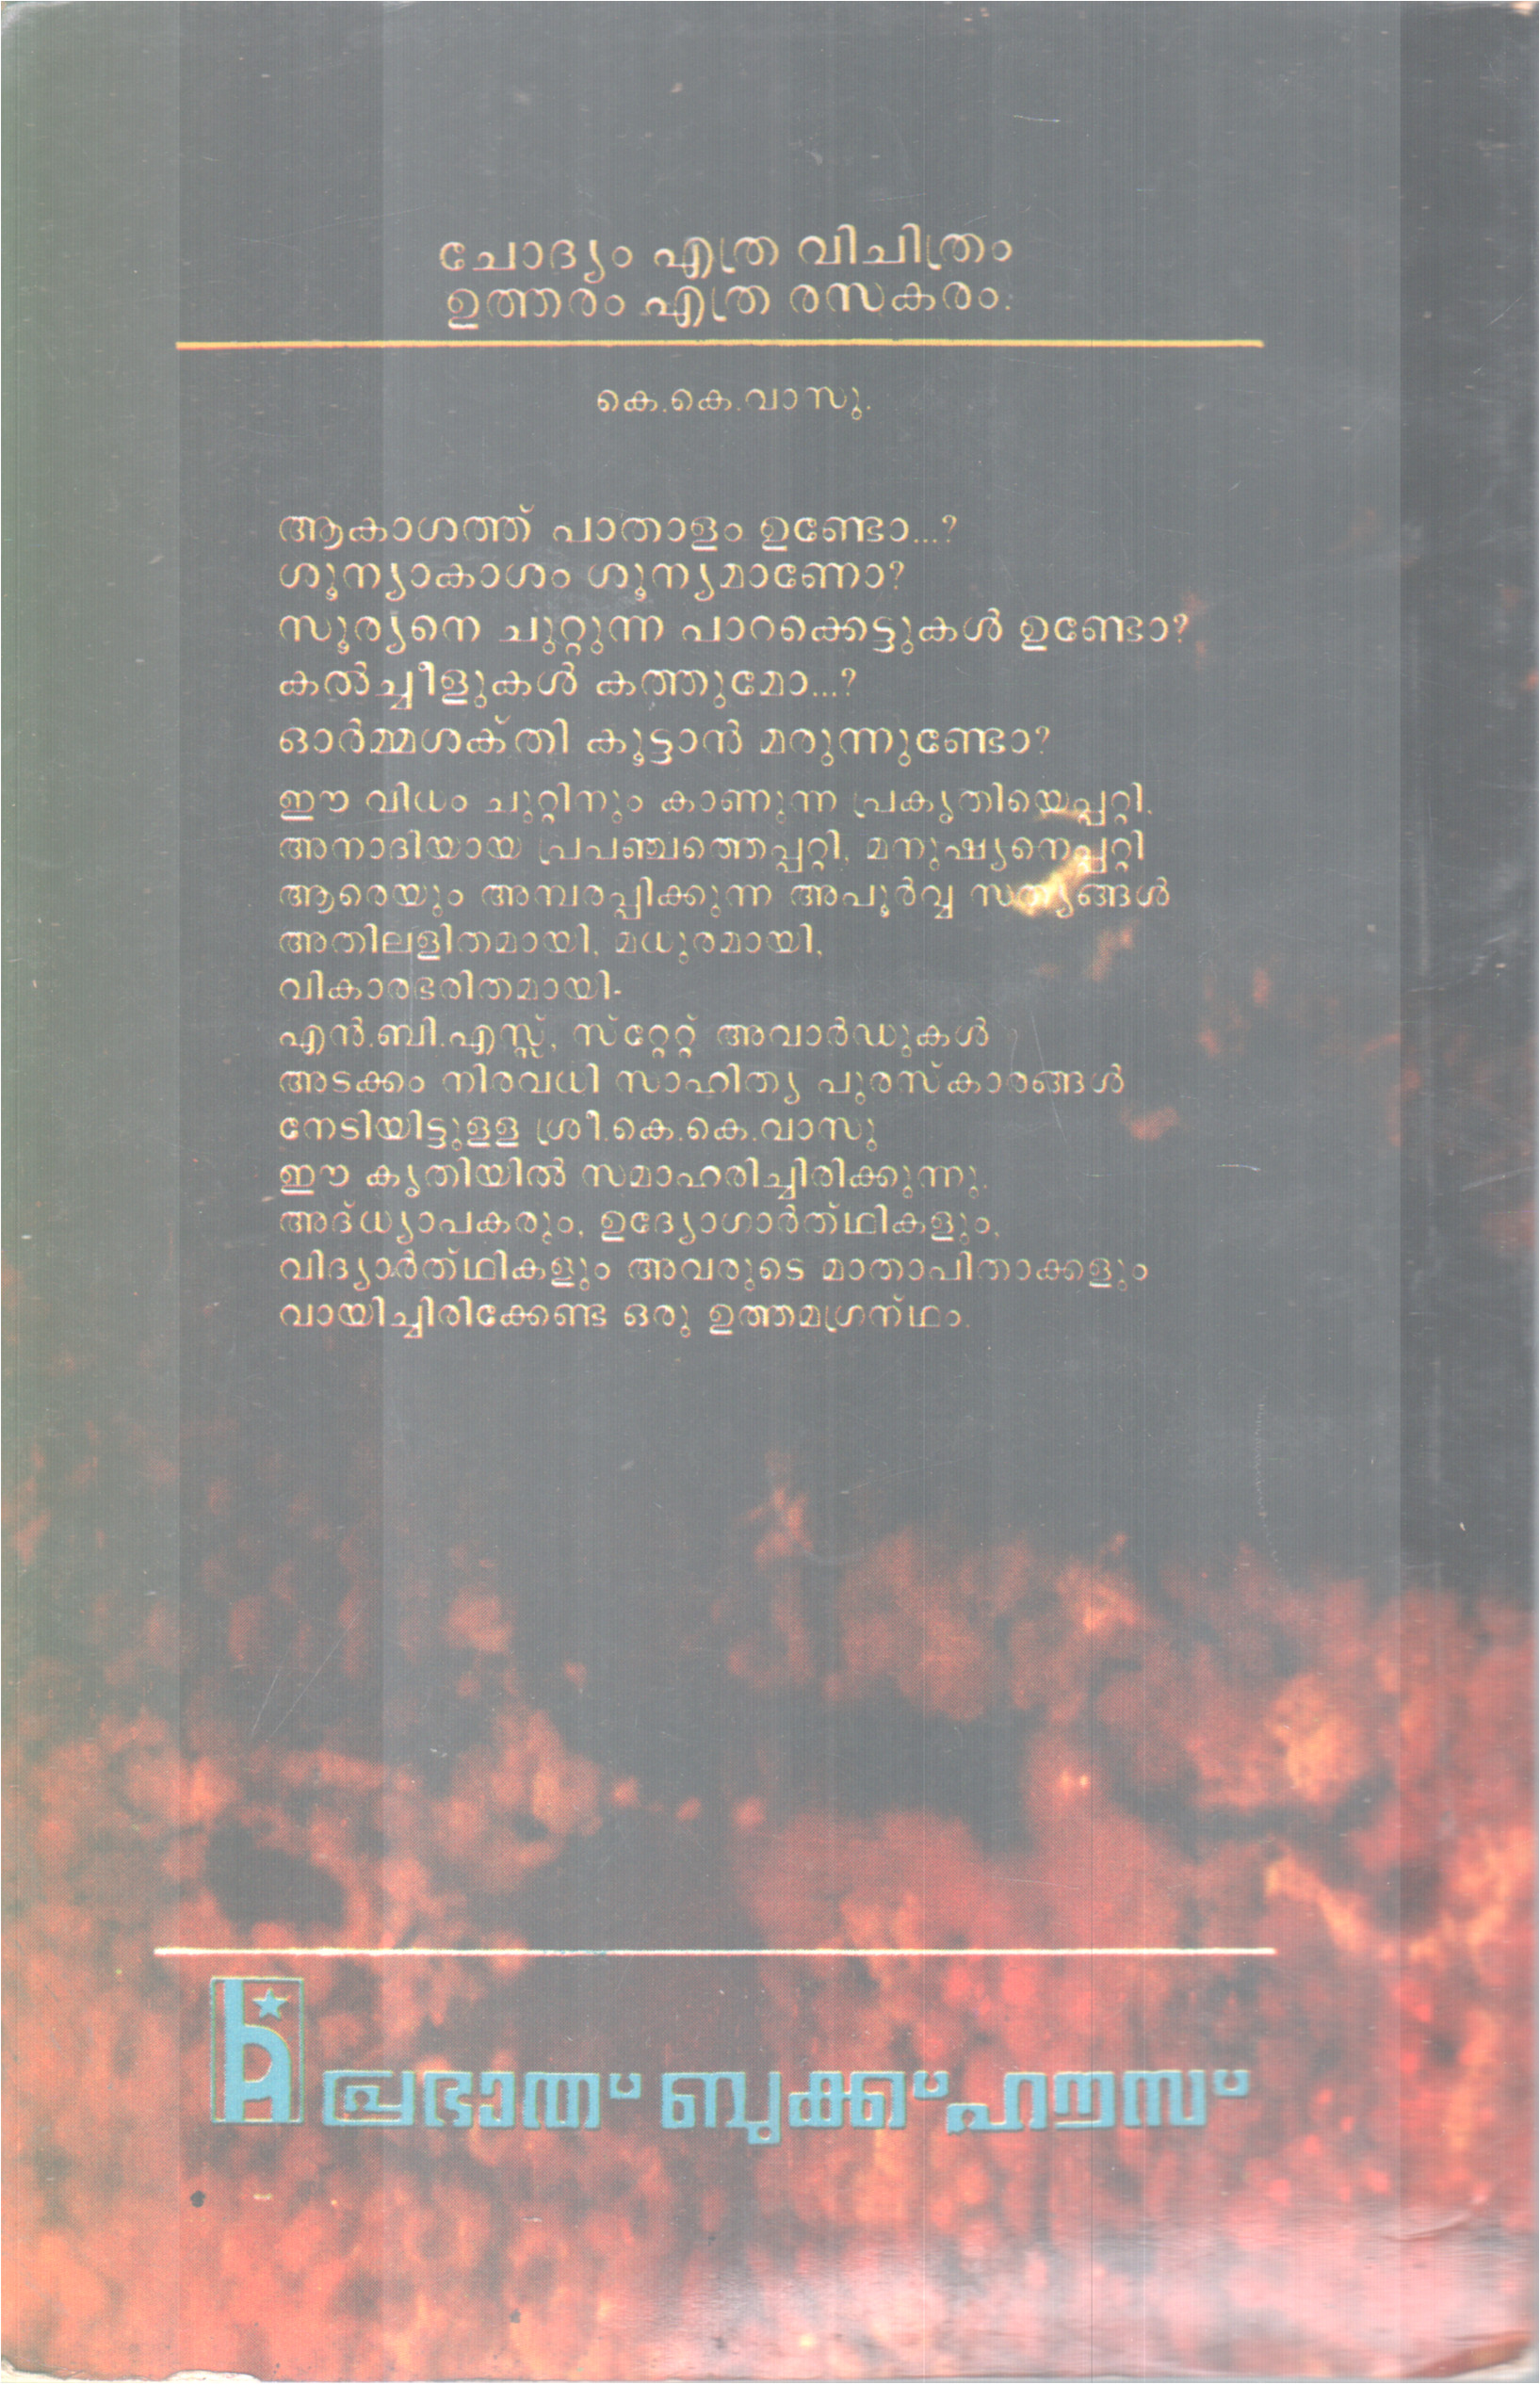 ചോദ്യം എത്ര വിചിത്രം
ഉത്തരം എത്ര രസകരം.
കെ.കെ.വാസു.
ആകാശത്ത് പാതാളം ഉണ്ടോ...?
ശൂന്യാകാശം ശൂന്യമാണോ?
സൂര്യനെ ചുറ്റുന്ന പാറക്കെട്ടുകൾ ഉണ്ടോ?
കൽച്ചീളുകൾ കത്തുമോ...?
ഓർമ്മശക്തി കൂട്ടാൻ മരുന്നുണ്ടോ?
ഈ വിധം ചുറ്റിനും കാണുന്ന പ്രകൃതിയെപ്പറ്റി,
അനാദിയായ പ്രപഞ്ചത്തെപ്പറ്റി, മനുഷ്യനെപ്പറ്റി
ആരെയും അമ്പരപ്പിക്കുന്ന അപൂർവ്വ സത്യങ്ങൾ
അതിലളിതമായി, മധുരമായി,
വികാരഭരിതമായി-
എൻ.ബി.എസ്സ്, സ്റ്റേറ്റ് അവാർഡുകൾ
അടക്കം നിരവധി സാഹിത്യ പുരസ്കാരങ്ങൾ
നേടിയിട്ടുള്ള ശ്രീ.കെ.കെ.വാസു
ഈ കൃതിയിൽ സമാഹരിച്ചിരിക്കുന്നു.
അദ്ധ്യാപകരും, ഉദ്യോഗാർത്ഥികളും,
വിദ്യാർത്ഥികളും അവരുടെ മാതാപിതാക്കളും
വായിച്ചിരിക്കേണ്ട ഒരു ഉത്തമഗ്രന്ഥം.
പ്രഭാത് ബുക്ക്ഹൗസ്